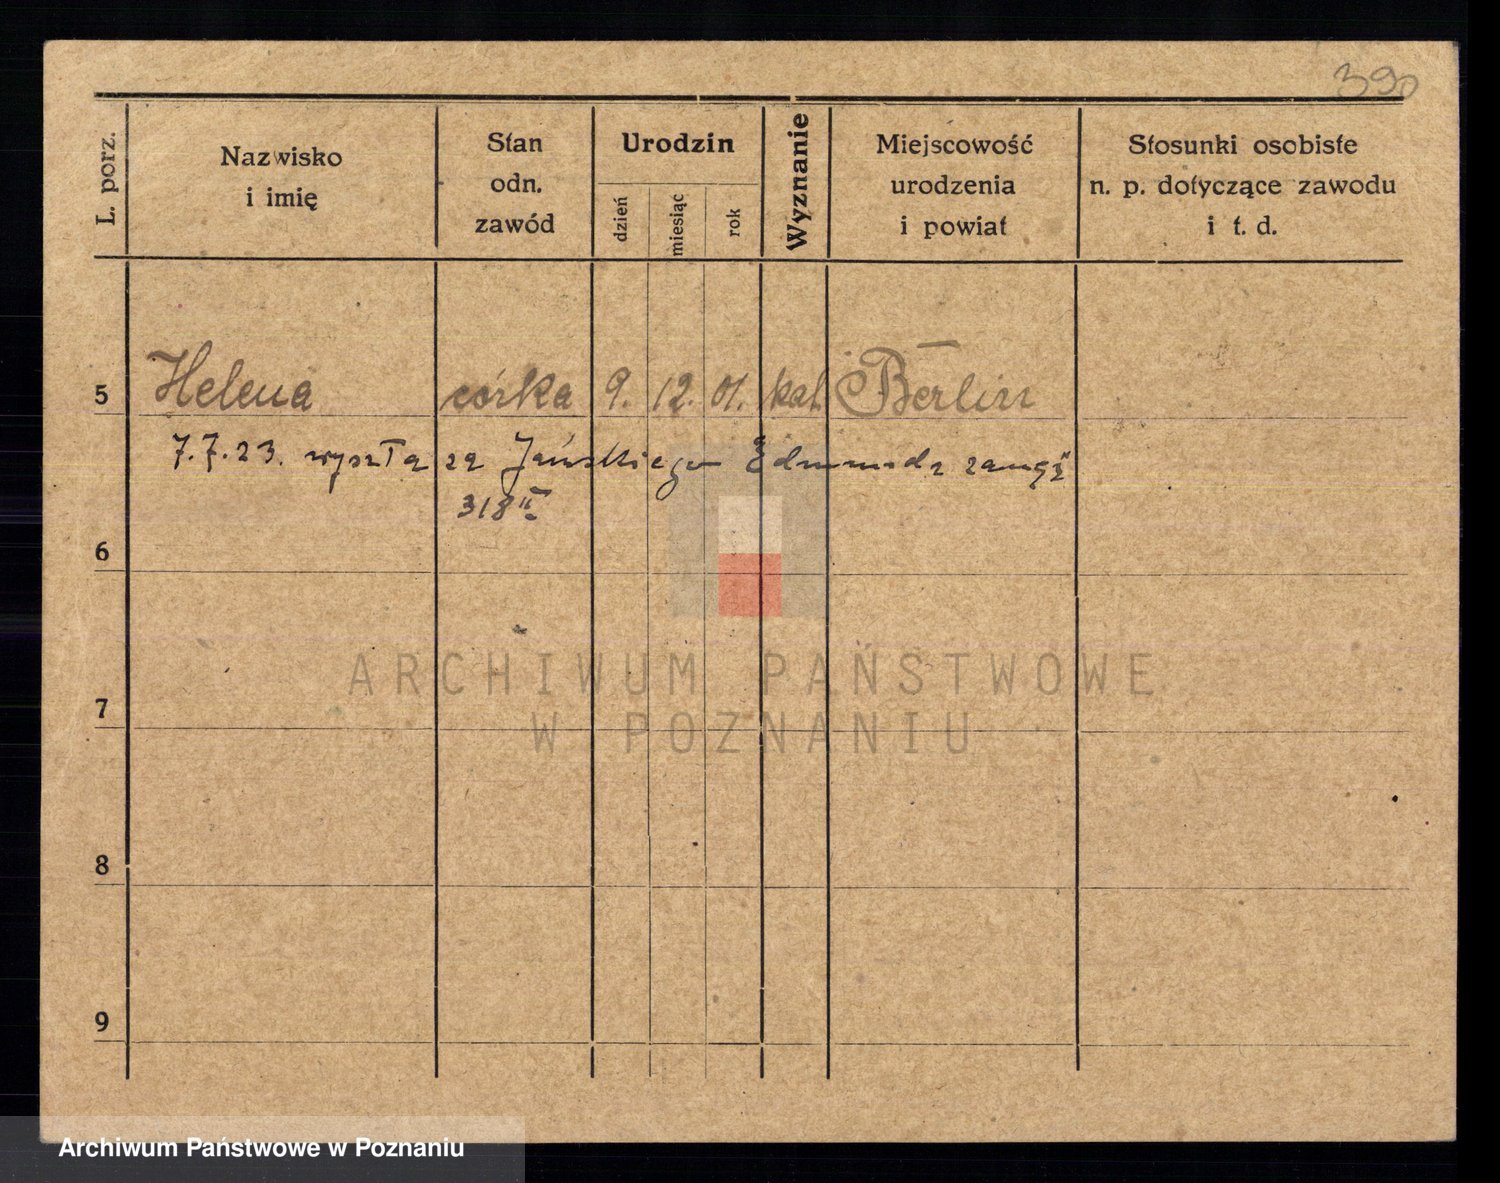 390
L. porz.
Nazwisko
i imię
Stan
odn.
zawód
Urodzin
dzień
miesiąc
rok
Wyznanie
Miejscowość
urodzenia
i powiat
Stosunki osobiste
n. p. dotyczące zawodu
i t. d.
5 Helena córka 9. 12. 01. kat. Berlin
7.7.23. wyszła za Jańskiego Edmunda zamąż
318 II
6
7
8
9
ARCHIWUM PAŃSTWOWE
W POZNANIU
Archiwum Państwowe w Poznaniu